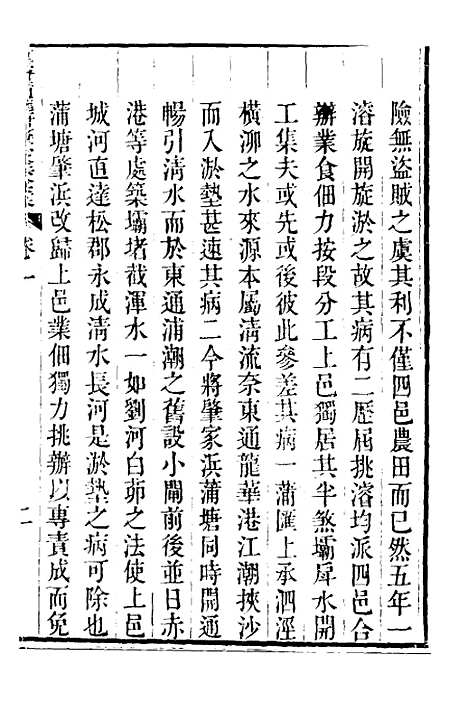 險無盜賊之虞其利不僅四邑農田而已然五年一
溶旋開旋淤之故其病有二歷屆挑溶均派四邑合
辦業食佃力按段分工上邑獨居其半煞壩戽水開
工集夫或先或後彼此參差其病一蒲匯上承泗涇
橫泖之水來源本屬清流奈東通龍華港江潮挾沙
而入淤墊甚速其病二今將肇家浜蒲塘同時開通
暢引清水而於東通浦潮之舊設小閘前後並日赤
港等處築壩堵截渾水一如劉河白茆之法使上邑
城河直達松郡永成清水長河是淤墊之病可除也
蒲塘肇浜改歸上邑業佃獨力挑辦以專責成而免
卷一
二